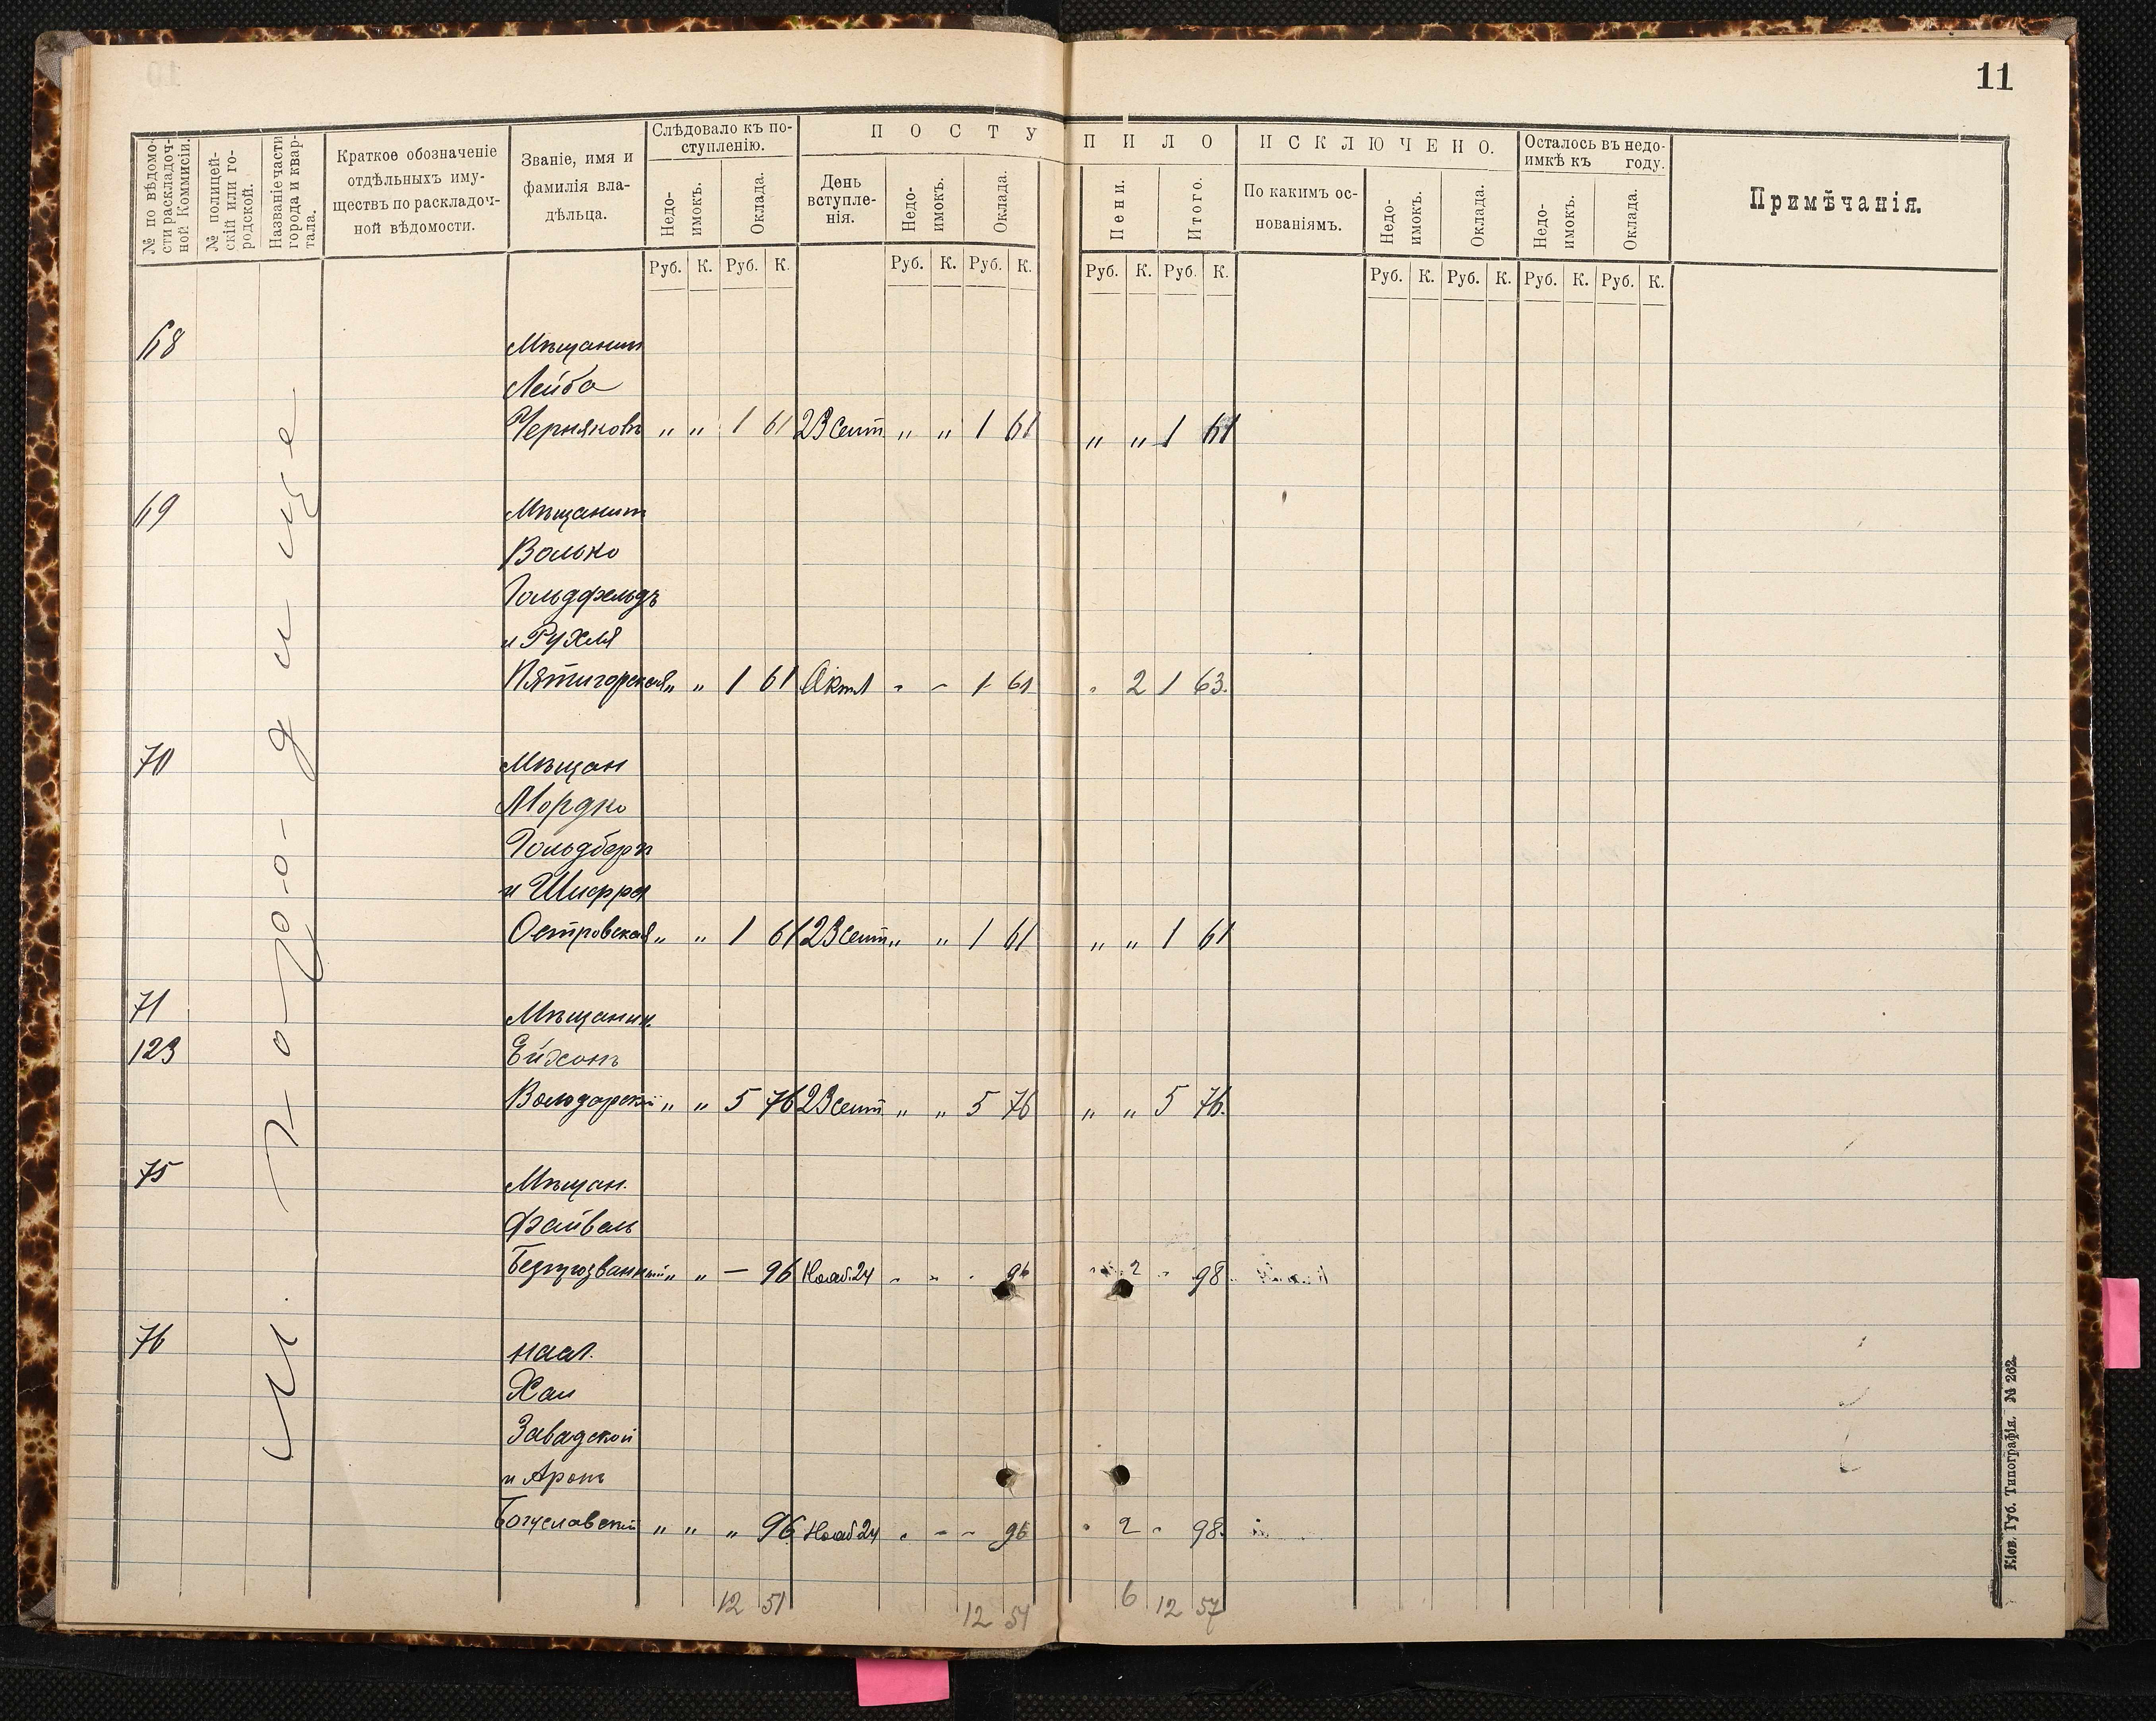 11
№ по вѣдомо-
сти раскладоч-
ной Коммисіи.
№ полицей-
скій или го-
родской.
Названіе части
города и квар-
тала.
Краткое обозначеніе
отдѣльныхъ иму-
ществъ по раскладоч-
ной вѣдомости.
Званіе, имя и
фамилія вла-
дѣльца.
Слѣдовало къ по-
ступленію.
Недо-
имокъ.
Оклада.
ПОСТУ
ПИЛО
День
вступле-
нія.
Недо-
имокъ.
Оклада.
Пени.
Итого.
ИСКЛЮЧЕНО.
По какимъ ос-
нованіямъ.
Недо-
имокъ.
Оклада.
Осталось въ недо-
имкѣ къ году.
Недо-
имокъ.
Оклада.
Примѣчанія.
Руб. К. Руб. К. Руб. К. Руб. К. Руб. К. Руб. К. Руб. К. Руб. К. Руб. К. Руб. К.
68 Мѣщанин
Лейба
Черняховъ „ „ 1 61 23 Сент „ „ 1 61 „ „ 1 61
69 Мѣщанинъ
Волько
Гольдфельдъ
и Рухля
Пятигорская „ „ 1 61 Окт 1 „ „ 1 61 „ 2 1 63.
70 Мѣщан
Мордко
Гольдберг
и Шифра
Островская „ „ 1 61 23 Сент „ „ 1 61 „ „ 1 61
71 Мѣщанин.
123
Володарскій „ „ 5 76 23 Сент „ „ 5 76 „ „ 5 76.
75 Мѣщан.
Файвель
„ „ — 96 Нояб. 24 „ „ „ 96 „ 2 „ 98
76 насл.
Хаи
Завадской
и Аронъ
Богуславскій „ „ „ 96 Нояб 24 „ „ „ 96 „ 2 „ 98.
12 51 12 51 6 12 57
Кіев. Губ. Типографія. № 262.